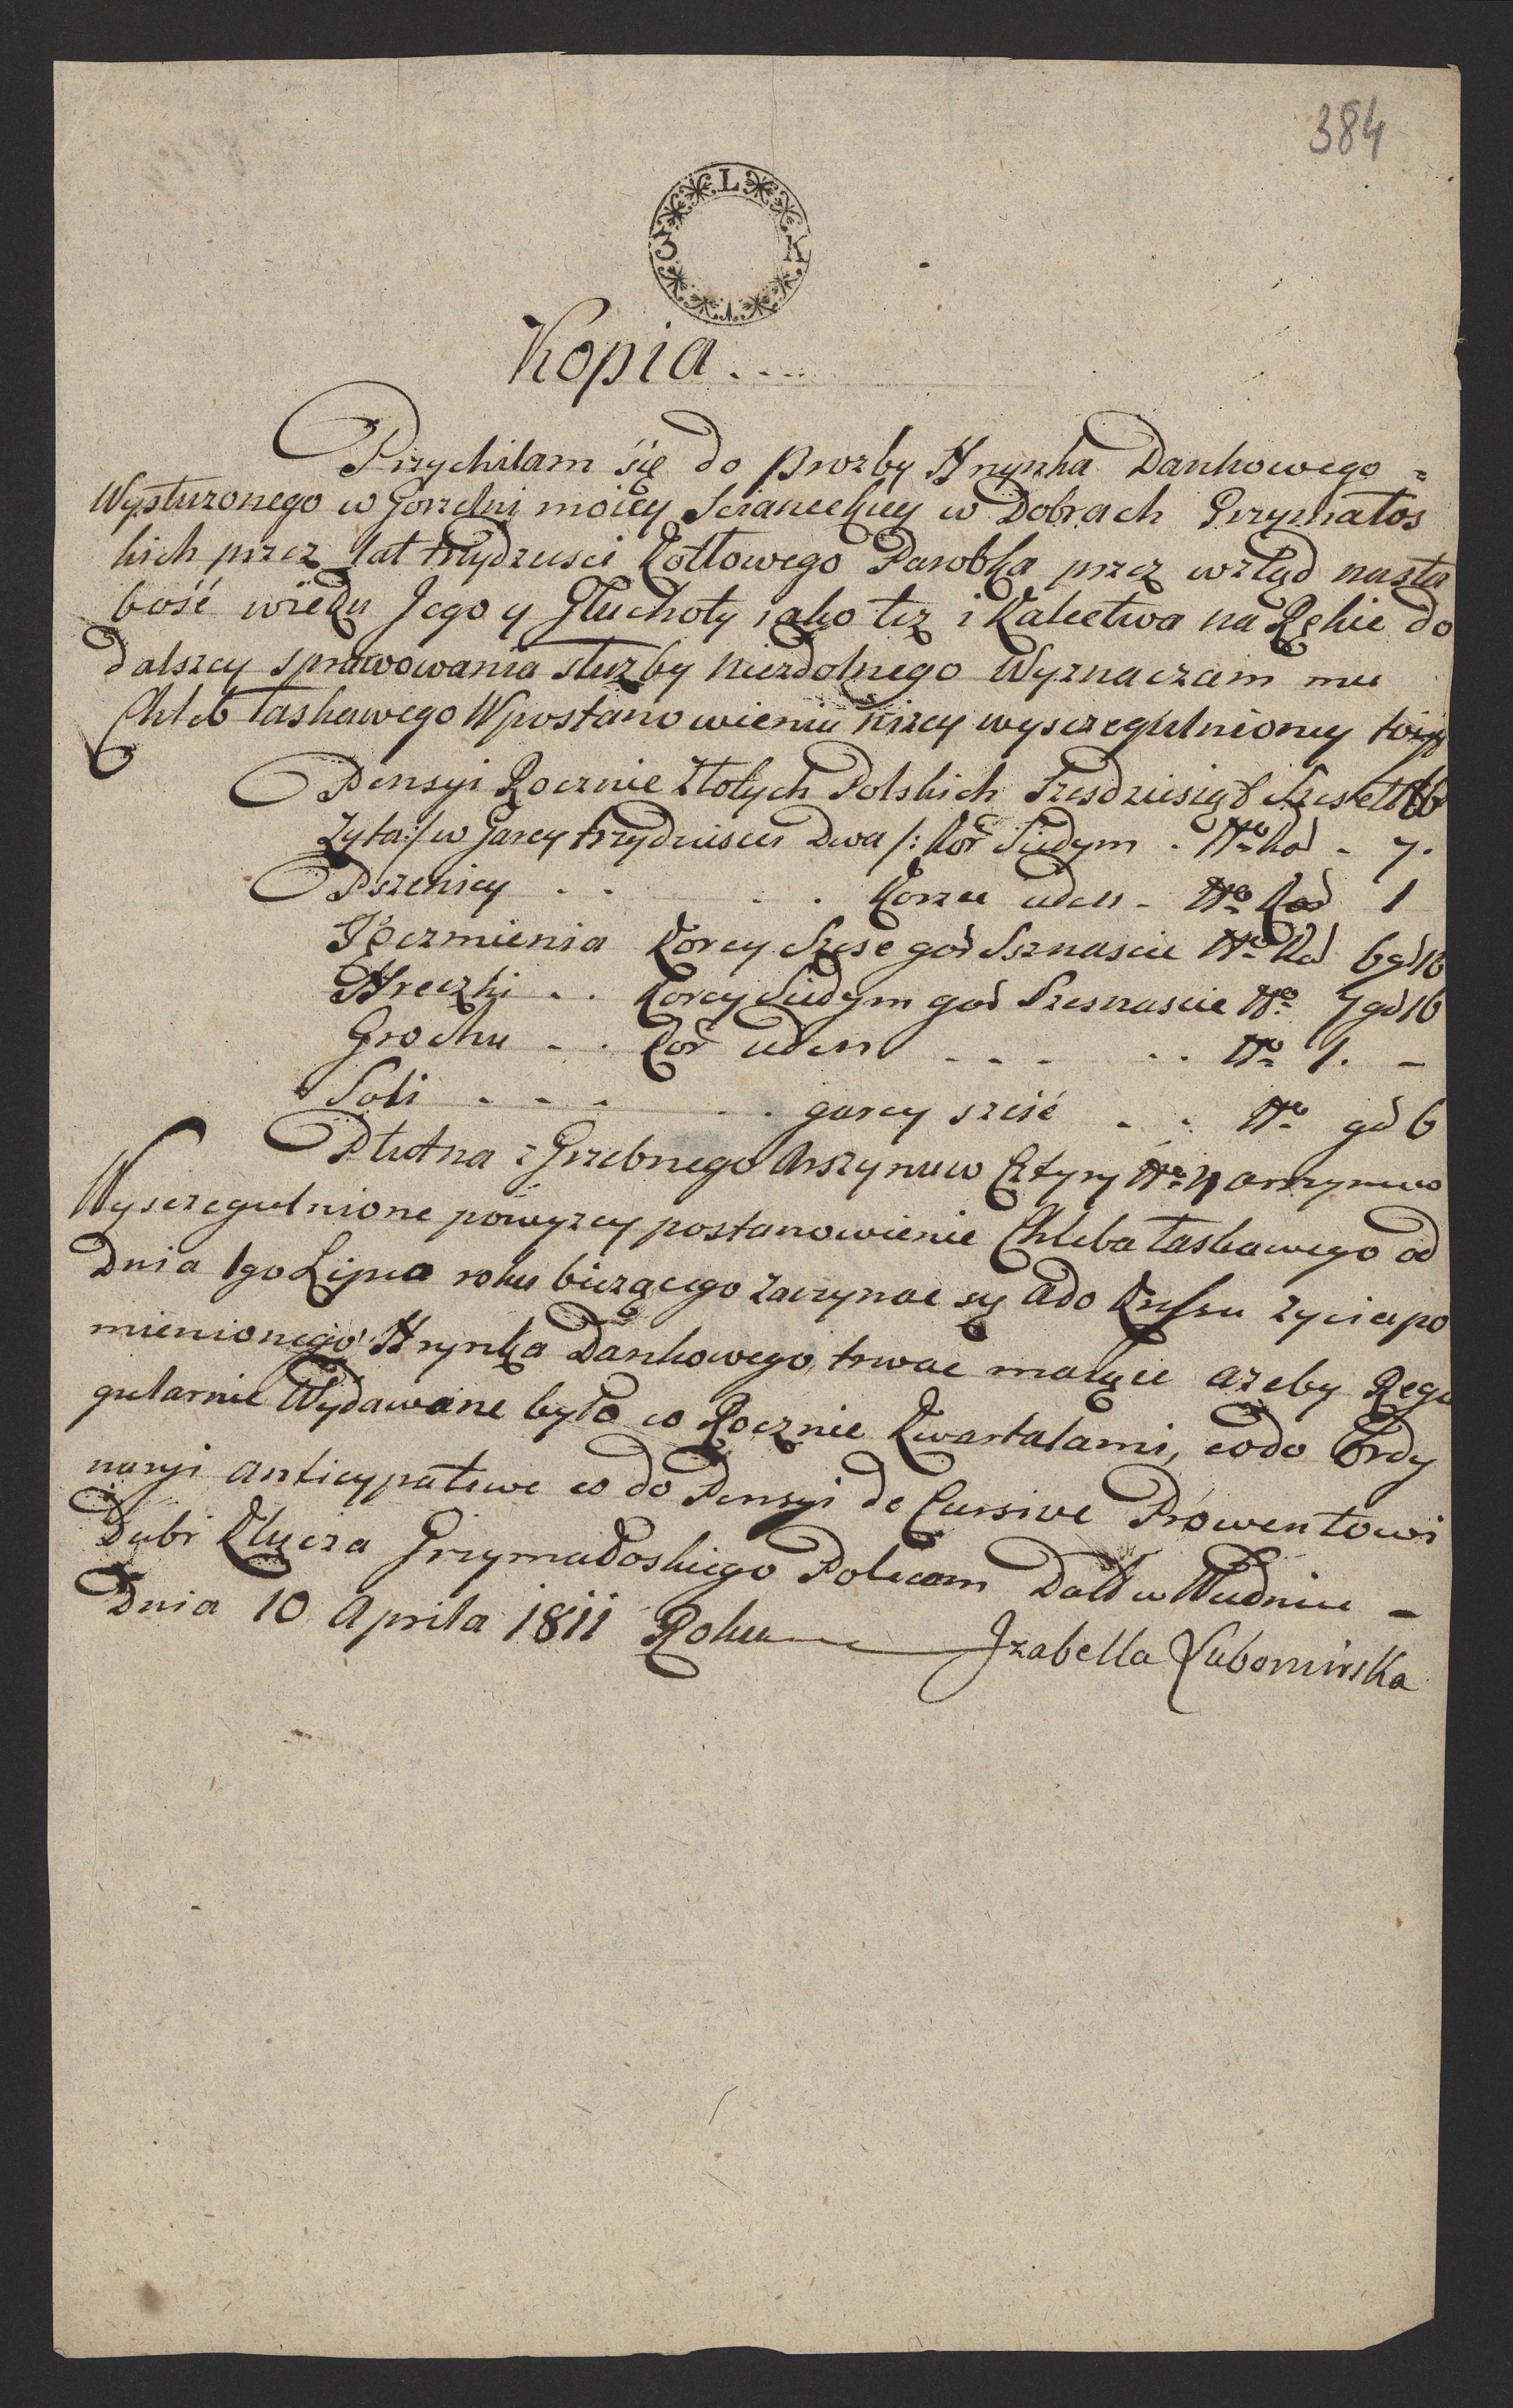 384
L
3 K
Kopia....
Przychilam się do Prozby Hrynka Dankowego =
Wysłuzonego w Gorzelni moiey Scianeckiey w Dobrach Grzymałos
kich przez lat trzydziesci Kotłowego Parobka przez wzląd na sła
bość wieku Jego y Głuchoty iako tez i Kalectwa na Rękie do
dalszey sprawowania służby niezdolnego Wyznaczam mu
Chleb łaskawego W postanowieniu nizey wyszczegulnioney
Pensyi Rocznie Złotych Polskich Szesdziesiąt Szesc 66
Zyta :/ w Garcy trzydziescie Dwa /: Kor Siedym . No Kor - 7.
Pszenicy . . . . Korzec ieden - No Kor 1
Jęczmienia Korcy Szesc gar Szsnascie No Kor 6 gar 16
Hreczki . . Korcy Siedym gar Szesnascie No 7 gar 16
Grochu . . Kor ieden - - - . . No 1. -
Soli - - - . . garcy sześć . . No gar 6
Płutna zGrzebnego Arszynuw Cztyry No 4 arszynuw
Wyszczegulnione powyzey postanowienie Chleba łaskawego od
Dnia 1go Lipca roku bieząego zaczynac sę a do Kresu zycia po
mienionego Hrynka Dankowego, trwac maiące azeby Regu
gularnie Wydawane było co Rocznie Kwartałami, co do Ordy
naryi anticypative co do Pensyi de Cursive Prowentowi
Dubr Klucza Grzymałoskiego Polecam Datt w Widniu -
Dnia 10 Aprila 1811 Roku Izabella Lubomirska